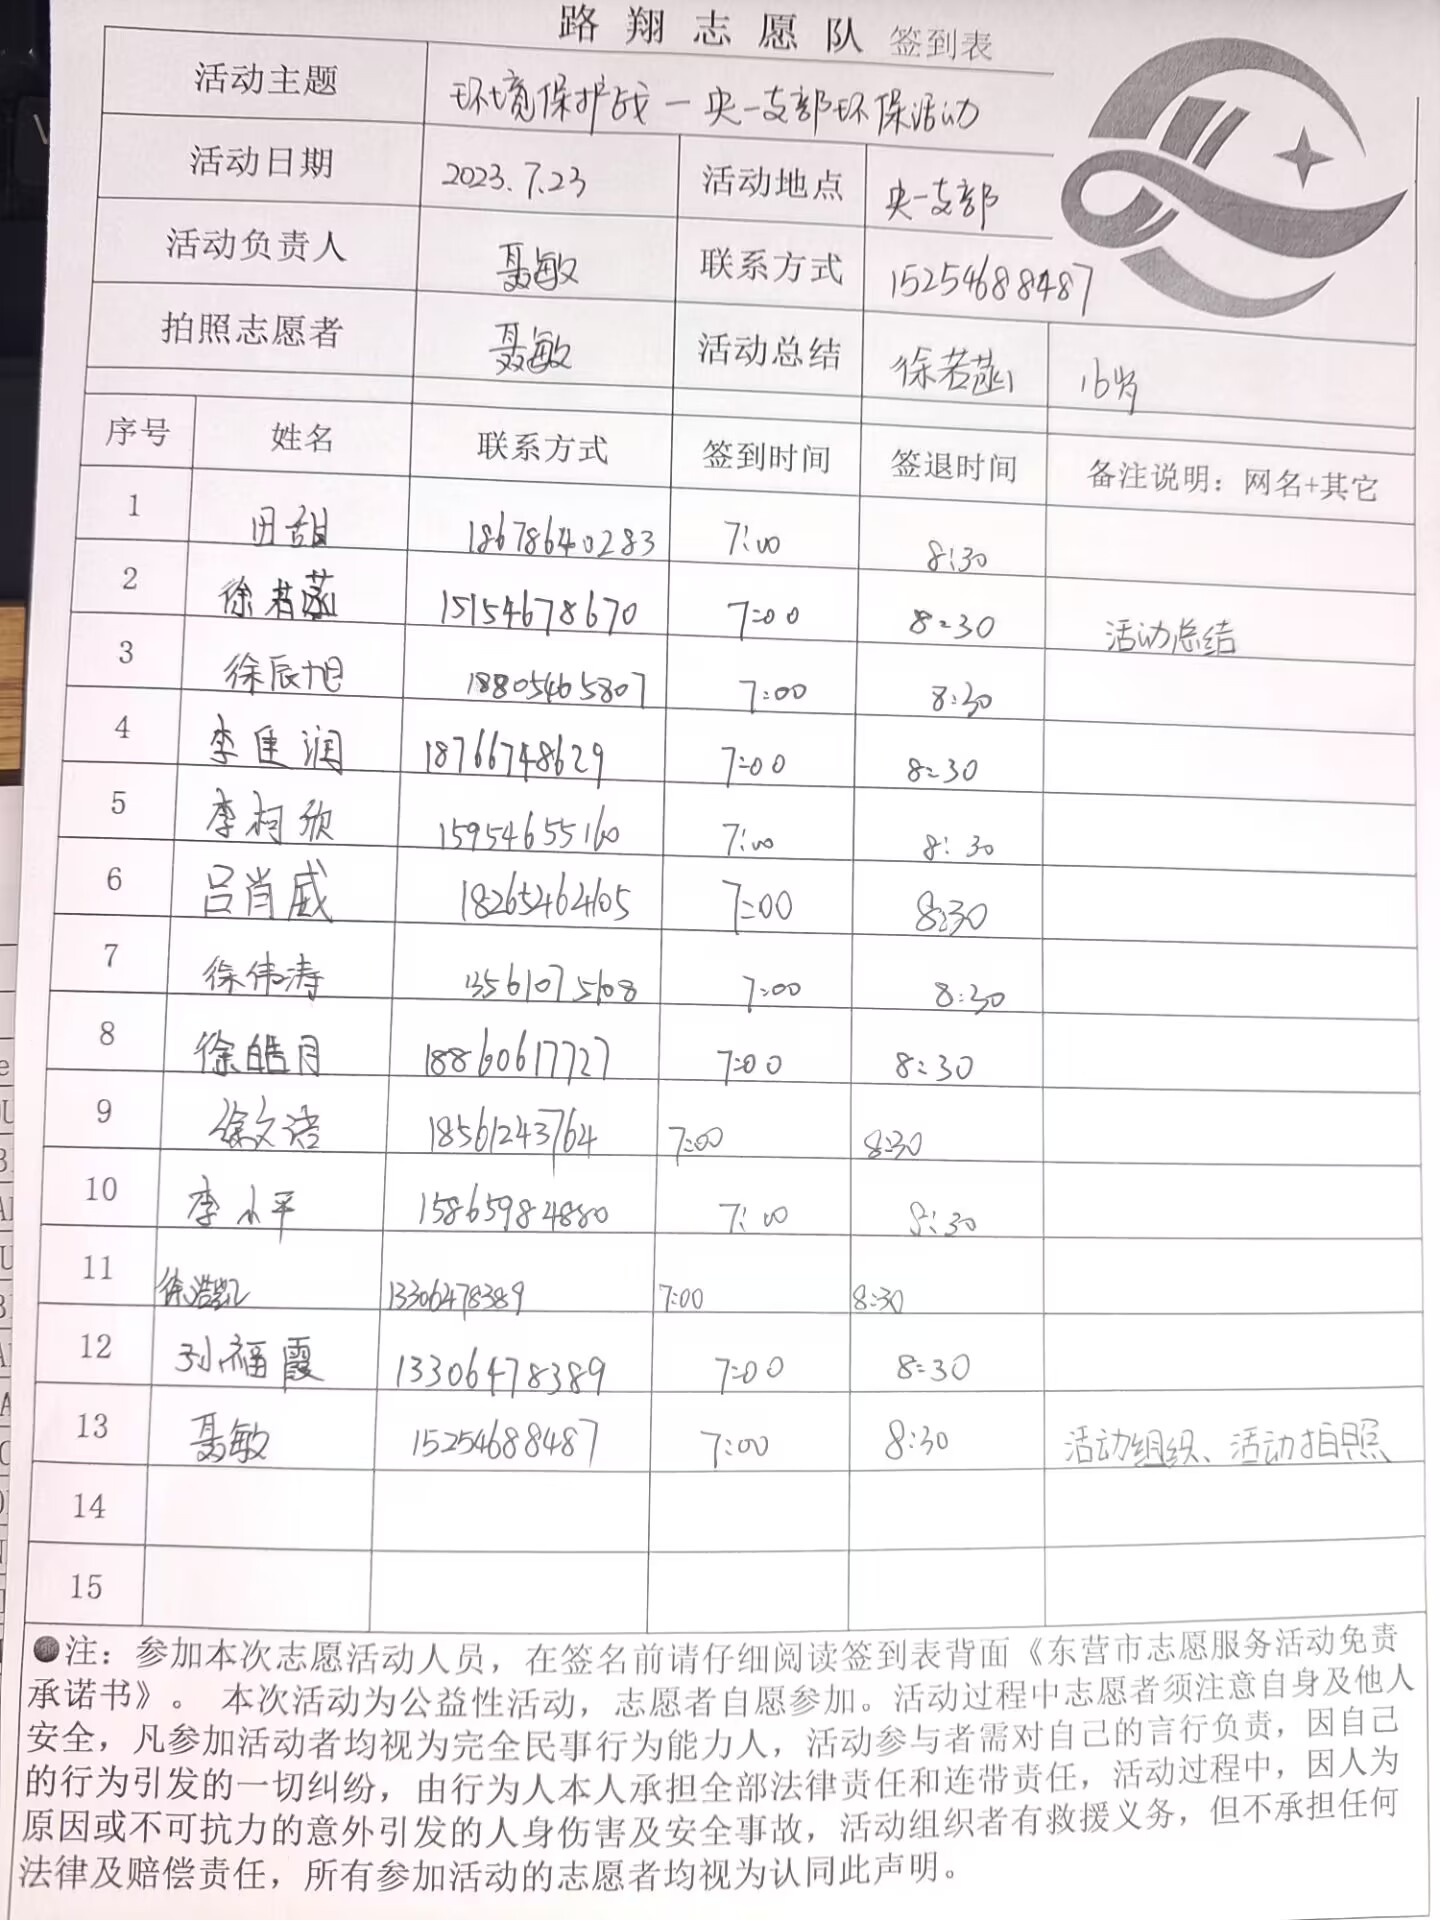 路翔志愿队 签到表
活动主题 环境保护战一央一支部环保活动
活动日期 2023.7.23 活动地点 央一支部
活动负责人 聂敏 联系方式 15254688487
拍照志愿者 聂敏 活动总结 徐若菡 16岁
序号 姓名 联系方式 签到时间 签退时间 备注说明：网名+其它
1 田甜 18678640283 7:00 8:30
2 徐若菡 15154678670 7:00 8:30 活动总结
3 徐辰旭 18805465807 7:00 8:30
4 李佳润 18766748629 7:00 8:30
5 李柯欣 15954655160 7:00 8:30
6 吕肖威 18265462405 7:00 8:30
7 徐伟涛 13561075608 7:00 8:30
8 徐皓月 18860617727 7:00 8:30
9 徐文浩 18561243764 7:00 8:30
10 李小平 15865984880 7:00 8:30
11 徐浩凯 13306478389 7:00 8:30
12 孙福霞 13306478389 7:00 8:30
13 聂敏 15254688487 7:00 8:30 活动组织、活动拍照
14
15
●注：参加本次志愿活动人员，在签名前请仔细阅读签到表背面《东营市志愿服务活动免责
承诺书》。 本次活动为公益性活动，志愿者自愿参加。活动过程中志愿者须注意自身及他人
安全，凡参加活动者均视为完全民事行为能力人，活动参与者需对自己的言行负责，因自己
的行为引发的一切纠纷，由行为人本人承担全部法律责任和连带责任，活动过程中，因人为
原因或不可抗力的意外引发的人身伤害及安全事故，活动组织者有救援义务，但不承担任何
法律及赔偿责任，所有参加活动的志愿者均视为认同此声明。